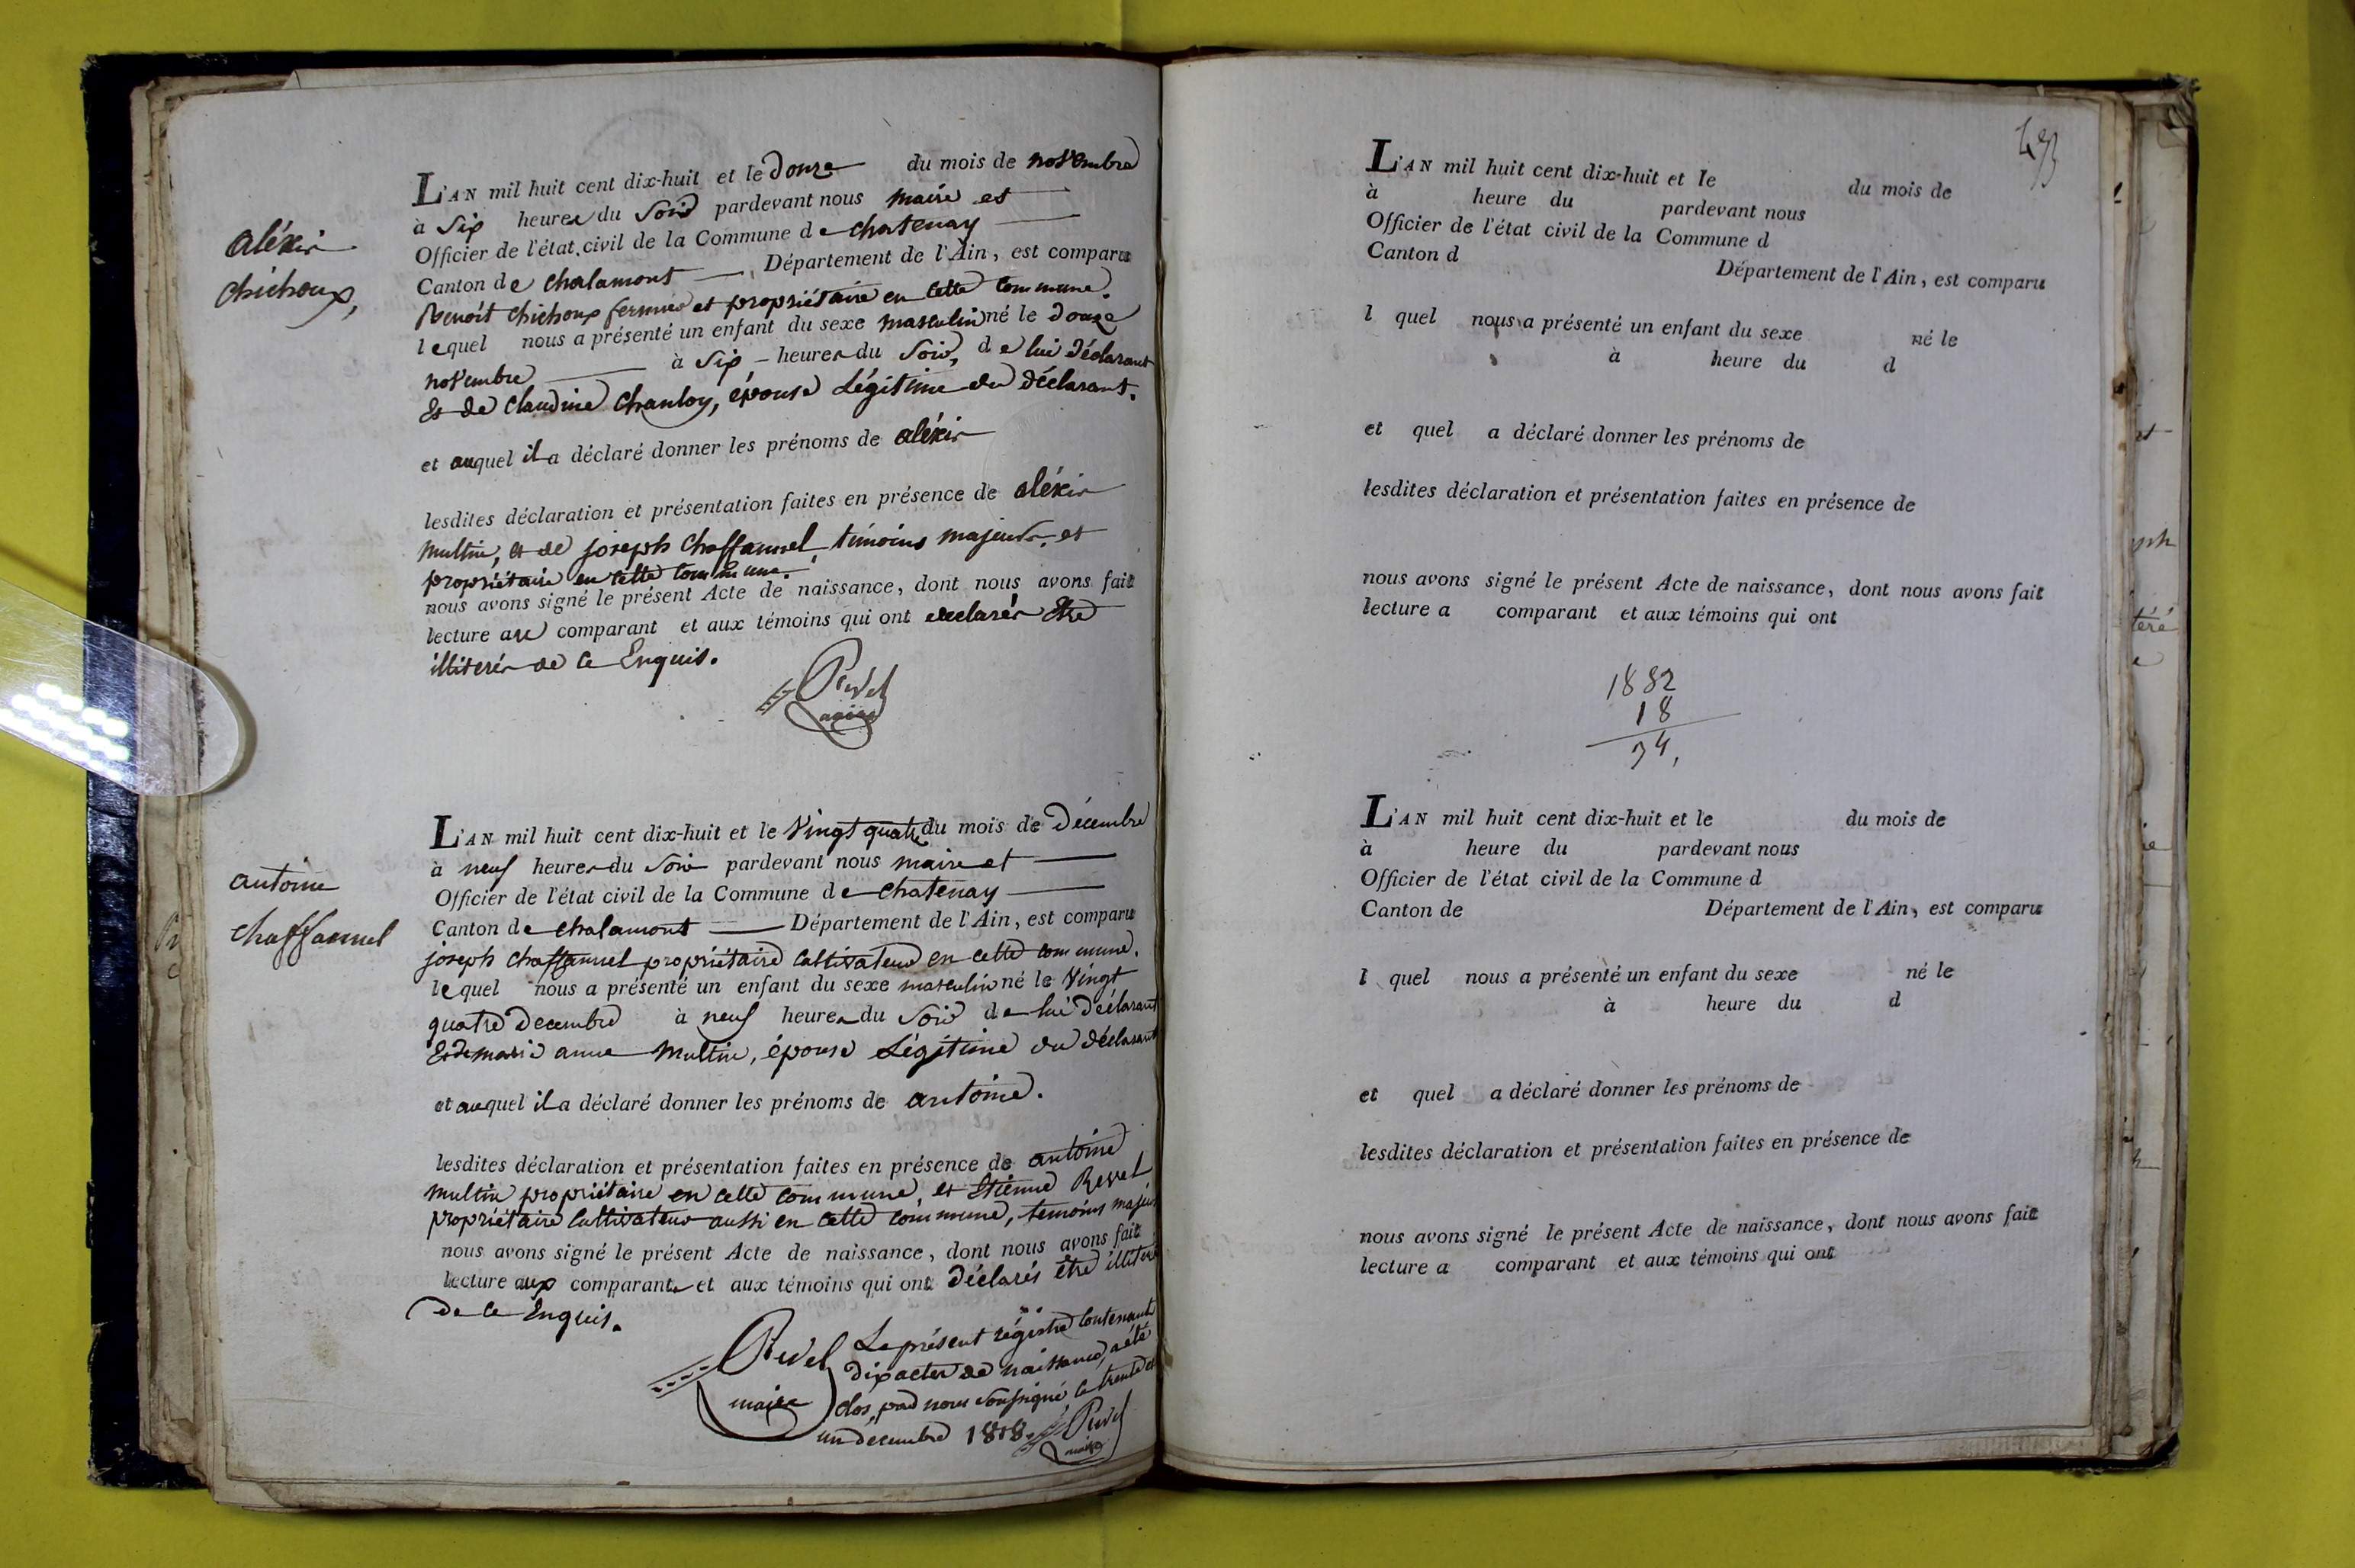 aléxis
chichoux,
L'AN mil huit cent dix-huit et le douze du mois de novembre
à six heures du soir pardevant nous maire et
Officier de l'état civil de la Commune de chatenay
Canton de chalamont Département de l'Ain, est comparu
Benoit chichoux fermier et propriétaire en cette commune.
lequel nous a présenté un enfant du sexe masculin né le douze
novembre à six heures du soir, de lui déclarant
et de claudine chanloy, épouse Légitime du déclarant.
et auquel il a déclaré donner les prénoms de aléxis
lesdites déclaration et présentation faites en présence de aléxis
multin, et de joseph chaffannel, témoins majeurs, et
propriétaire en cette commune.
nous avons signé le présent Acte de naissance, dont nous avons fait
lecture au comparant et aux témoins qui ont declarés être
illiterés de ce Enquis.
Revel
maire
antoine
chaffannel
L'AN mil huit cent dix-huit et le vingt quatre du mois de Décembre
à neuf heures du soir pardevant nous maire et
Officier de l'état civil de la Commune de chatenay
Canton de chalamont Département de l'Ain, est comparu
joseph chaffannel propriétaire cultivateur en cette commune.
lequel nous a présenté un enfant du sexe masculin né le vingt
quatre decembre à neuf heures du soir de lui déclarant
et de marie anne multin, épouse Légitime du déclarant
et auquel il a déclaré donner les prénoms de antoine.
lesdites déclaration et présentation faites en présence de antoine
multin propriétaire en cette commune, et Etienne Revel
propriétaire cultivateur aussi en cette commune, temoins majeurs
nous avons signé le présent Acte de naissance, dont nous avons fait
lecture aux comparants et aux témoins qui ont déclarés être illiterés
de ce Enquis.
Revel
maire
Le présent régistre contenant
dix actes de naissance, a été
clos, par nous soussigné, le trente et
un décembre 1818. Revel
maire
L'AN mil huit cent dix-huit et le du mois de
à heure du pardevant nous
Officier de l'état civil de la Commune d
Canton d Département de l'Ain, est comparu
l quel nous a présenté un enfant du sexe né le
à heure du d
et quel a déclaré donner les prénoms de
lesdites déclaration et présentation faites en présence de
nous avons signé le présent Acte de naissance, dont nous avons fait
lecture a comparant et aux témoins qui ont
1832
18
34,
L'AN mil huit cent dix-huit et le du mois de
à heure du pardevant nous
Officier de l'état civil de la Commune d
Canton de Département de l'Ain, est comparu
l quel nous a présenté un enfant du sexe né le
à heure du d
et quel a déclaré donner les prénoms de
lesdites déclaration et présentation faites en présence de
nous avons signé le présent Acte de naissance, dont nous avons fait
lecture a comparant et aux témoins qui ont